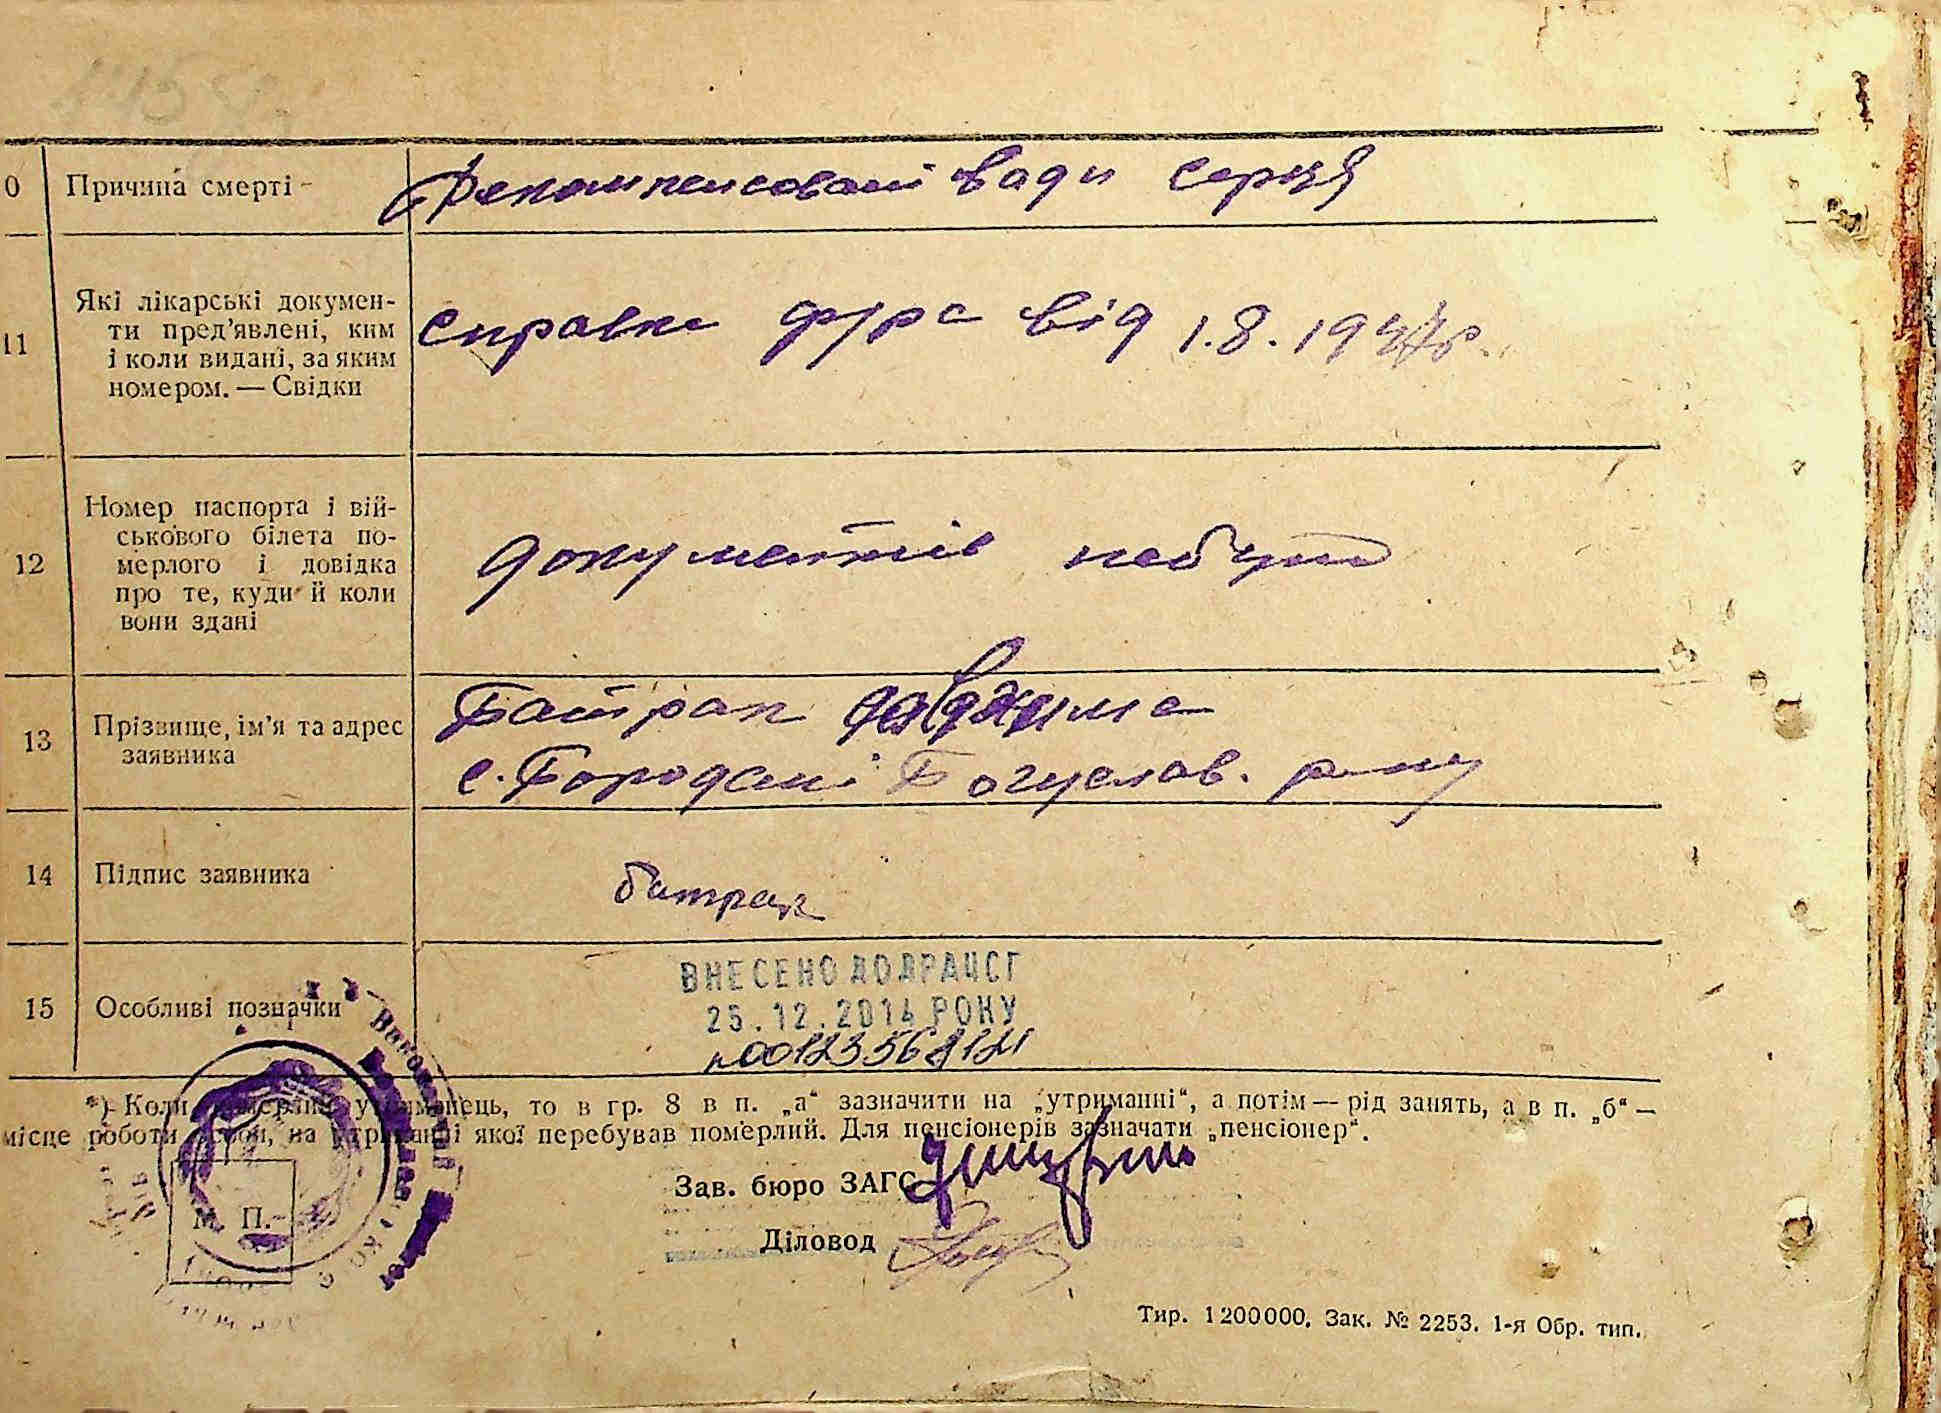 0 Причина смерті - Декомпенсовані вади серця
11 Які лікарські докумен-
ти пред’явлені, ким
і коли видані, за яким
номером. — Свідки
справка ф/ра від 1.8.1947р.
12 Номер паспорта і вій-
ськового білета по-
мерлого і довідка
про те, куди й коли
вони здані
документів небуло
13 Прізвище, ім’я та адрес
заявника
Батрак
с. Бородані Богуслав. р-ну
14 Підпис заявника
батрак
15 Особливі позначки
ВНЕСЕНО ДО ДРАЦСГ
25.12.2014 РОКУ
*) Коли померлий утриманець, то в гр. 8 в п. „а“ зазначити на „утриманні“, а потім — рід занять, а в п. „б“ —
місце роботи особи, на утриманні якої перебував померлий. Для пенсіонерів зазначати „пенсіонер“.
Зав. бюро ЗАГС
М. П.
Діловод
Тир. 1200000. Зак. № 2253. 1-я Обр. тип.